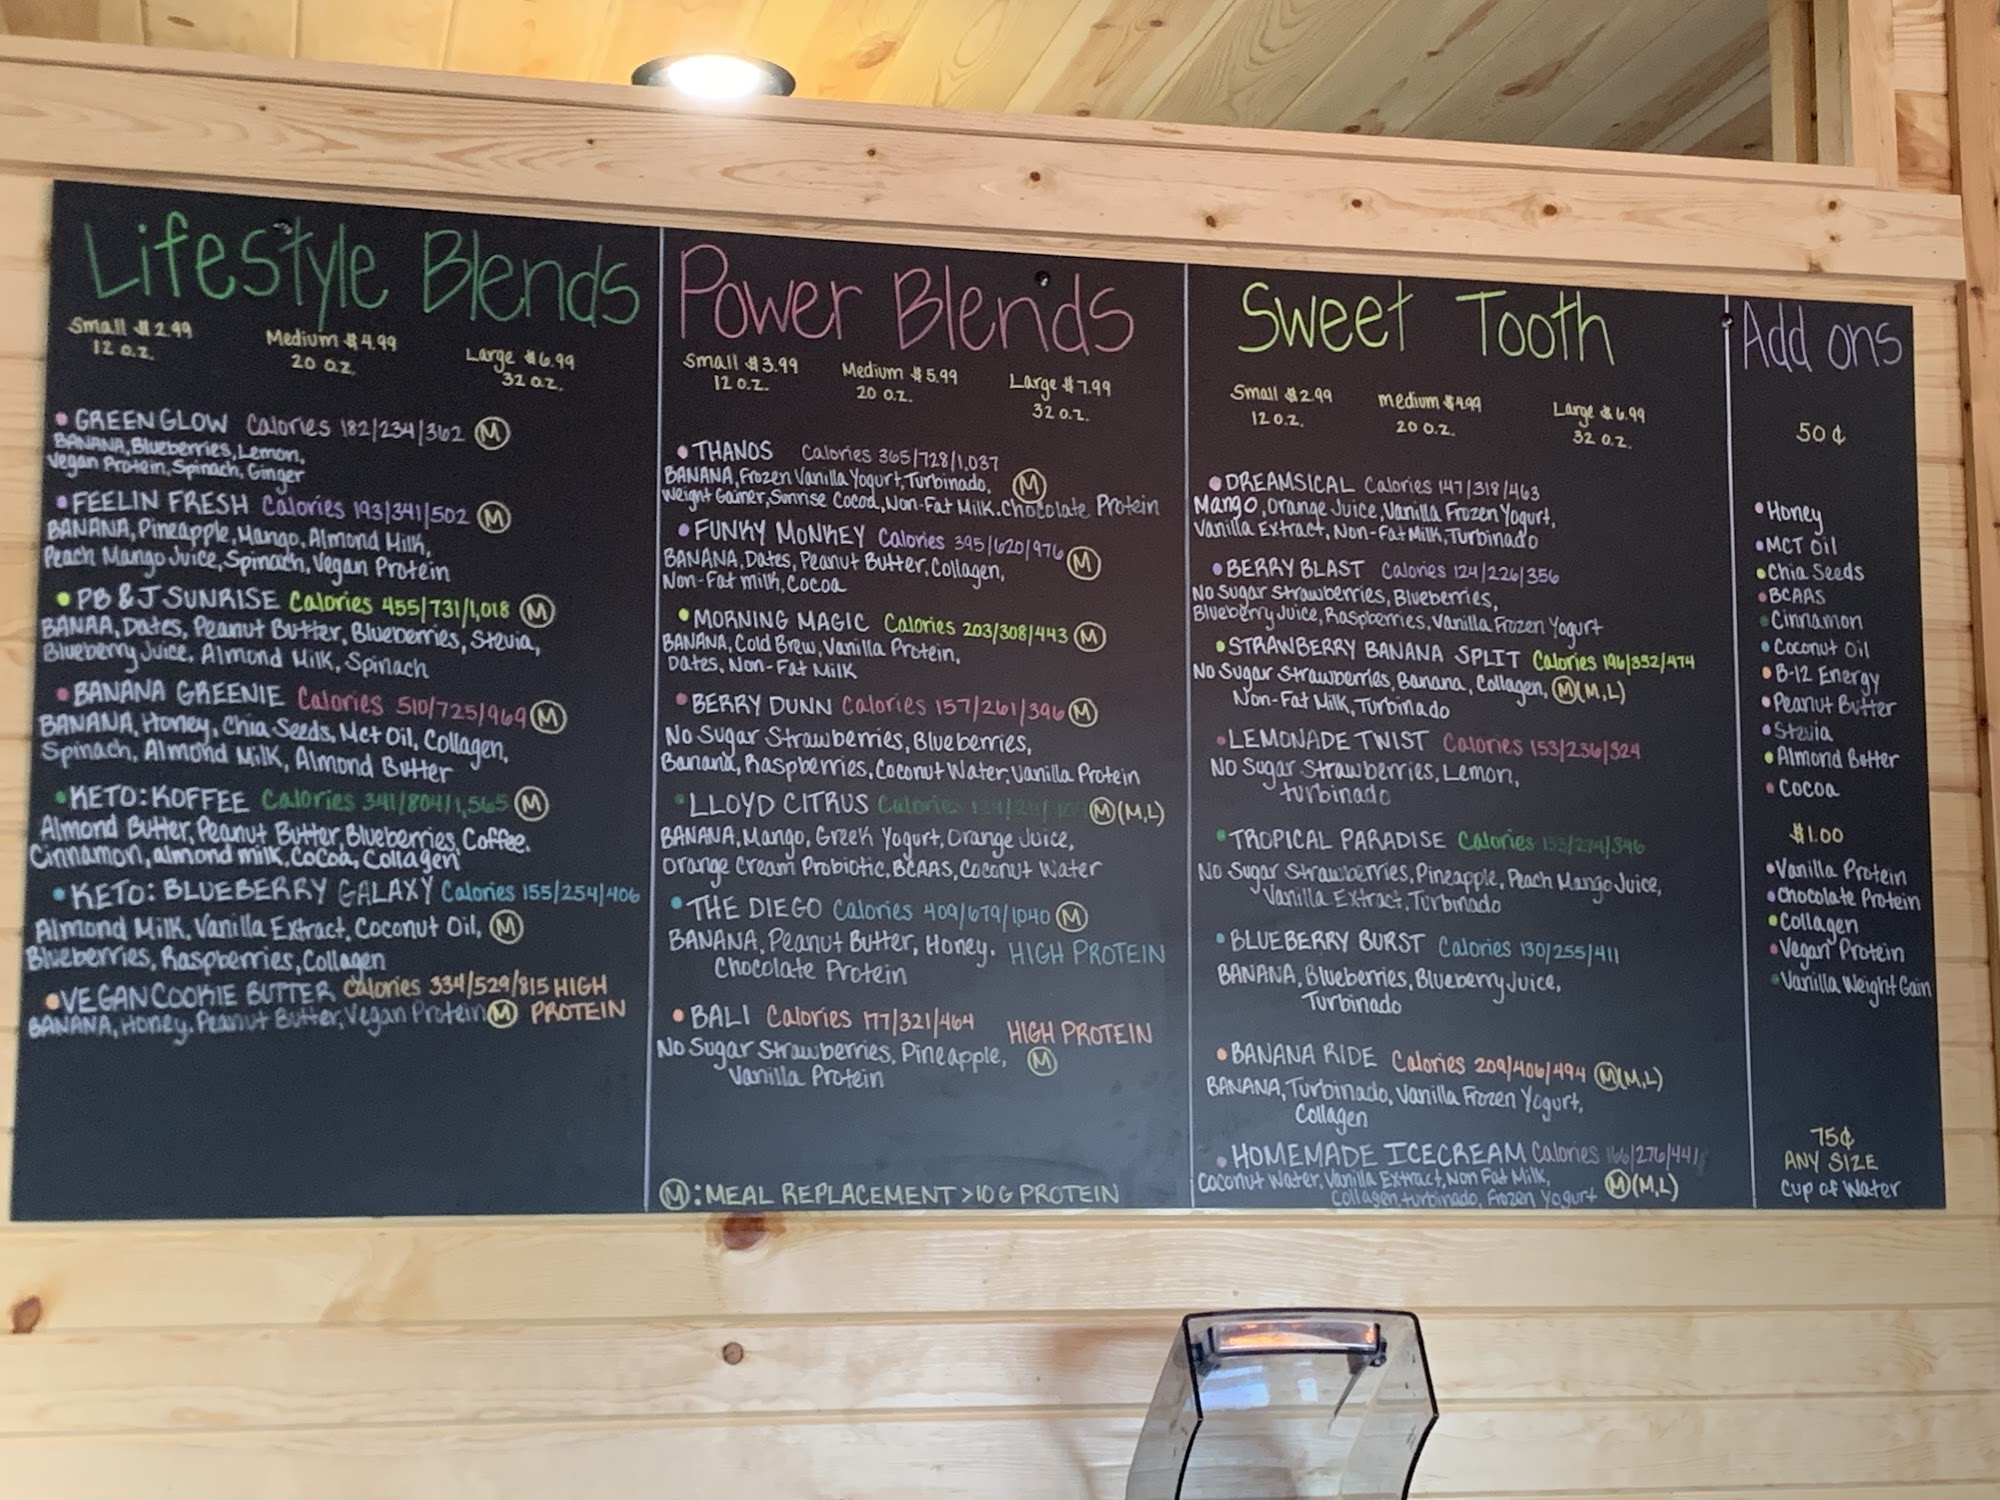 Lifestyle Blends
Small $2.99 Medium $4.99 Large $6.99
12 o.z. 20 o.z. 32 o.z.
• GREEN GLOW Calories 182/234/362 M
BANANA, Blueberries, Lemon,
Vegan Protein, Spinach, Ginger
• FEELIN FRESH Calories 193/341/502 M
BANANA, Pineapple, Mango, Almond Milk,
Peach Mango Juice, Spinach, Vegan Protein
• PB & J SUNRISE Calories 455/731/1,018 M
BANAA, Dates, Peanut Butter, Blueberries, Stevia,
Blueberry Juice, Almond Milk, Spinach
• BANANA GREENIE Calories 510/725/969 M
BANANA, Honey, Chia Seeds, Mct Oil, Collagen,
Spinach, Almond Milk, Almond Butter
• KETO: KOFFEE Calories 341/804/1,565 M
Almond Butter, Peanut Butter, Blueberries, Coffee,
Cinnamon, almond milk, Cocoa, Collagen
• KETO: BLUEBERRY GALAXY Calories 155/254/406
Almond Milk, Vanilla Extract, Coconut Oil, M
Blueberries, Raspberries, Collagen
• VEGAN COOKIE BUTTER Calories 334/529/815 HIGH
BANANA, Honey, Peanut Butter, Vegan Protein M PROTEIN
Power Blends
Small $3.99 Medium $5.99 Large $7.99
12 o.z. 20 o.z. 32 o.z.
• THANOS Calories 365/728/1,037
BANANA, Frozen Vanilla Yogurt, Turbinado, M
Weight Gainer, Sunrise Cocoa, Non-Fat Milk. Chocolate Protein
• FUNKY MONKEY Calories 395/620/976 M
BANANA, Dates, Peanut Butter, Collagen,
Non-Fat milk, Cocoa
• MORNING MAGIC Calories 203/308/443 M
BANANA, Cold Brew, Vanilla Protein,
Dates, Non-Fat Milk
• BERRY DUNN Calories 157/261/396 M
No Sugar Strawberries, Blueberries,
Banana, Raspberries, Coconut Water, Vanilla Protein
• LLOYD CITRUS Calories M (M,L)
BANANA, Mango, Greek Yogurt, Orange Juice,
Orange Cream Probiotic, BCAAS, Coconut Water
• THE DIEGO Calories 409/679/1,040 M
BANANA, Peanut Butter, Honey, HIGH PROTEIN
Chocolate Protein
• BALI Calories 177/321/464 HIGH PROTEIN
No Sugar Strawberries, Pineapple, M
Vanilla Protein
M: MEAL REPLACEMENT >10 G PROTEIN
Sweet Tooth
Small $2.99 medium $4.99 Large $6.99
12 o.z. 20 o.z. 32 o.z.
• DREAMSICAL Calories 147/318/463
Mango, Orange Juice, Vanilla Frozen Yogurt,
Vanilla Extract, Non-Fat Milk, Turbinado
• BERRY BLAST Calories 124/226/356
No Sugar Strawberries, Blueberries,
Blueberry Juice, Raspberries, Vanilla Frozen Yogurt
• STRAWBERRY BANANA SPLIT Calories 196/352/474
No Sugar Strawberries, Banana, Collagen, M (M,L)
Non-Fat Milk, Turbinado
• LEMONADE TWIST Calories 153/236/324
No Sugar Strawberries, Lemon,
turbinado
• TROPICAL PARADISE Calories 153/274/346
No Sugar Strawberries, Pineapple, Peach Mango Juice,
Vanilla Extract, Turbinado
• BLUEBERRY BURST Calories 130/255/411
BANANA, Blueberries, Blueberry Juice,
Turbinado
• BANANA RIDE Calories 209/406/494 M (M,L)
BANANA, Turbinado, Vanilla Frozen Yogurt,
Collagen
• HOMEMADE ICECREAM Calories 166/276/441
Coconut Water, Vanilla Extract, Non Fat Milk, M (M,L)
Collagen, turbinado, Frozen Yogurt
Add ons
50¢
• Honey
• MCT Oil
• Chia Seeds
• BCAAS
• Cinnamon
• Coconut Oil
• B-12 Energy
• Peanut Butter
• Stevia
• Almond Butter
• Cocoa
$1.00
• Vanilla Protein
• Chocolate Protein
• Collagen
• Vegan Protein
• Vanilla Weight Gain
75¢
ANY SIZE
Cup of Water